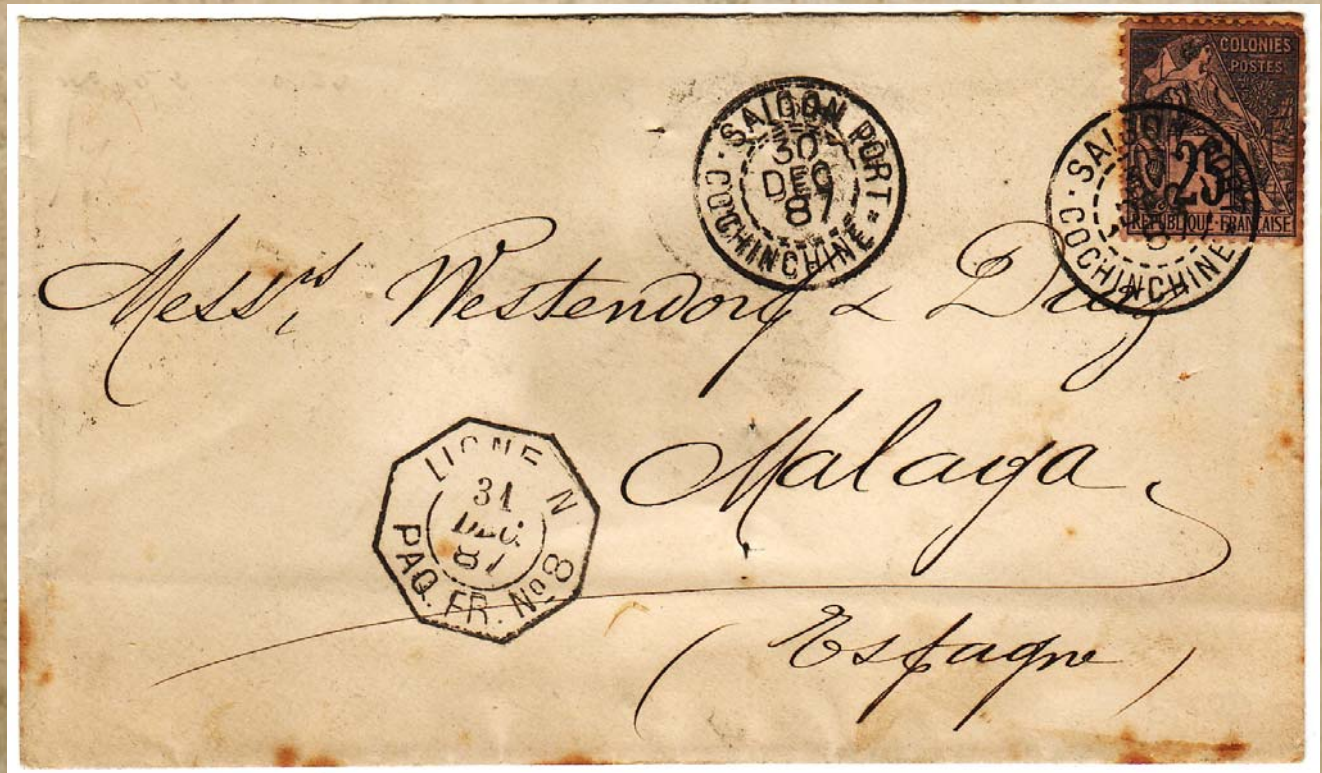 COLONIES
POSTES
25
REPUBLIQUE FRANÇAISE
SAIGON PORT
30
DEC
87
COCHINCHINE
SAIGON PORT
COCHINCHINE
Messrs Westendorp & Diaz
Malaga
LIGNE N
31
DEC.
87
PAQ. FR. No 8
(Espagne)